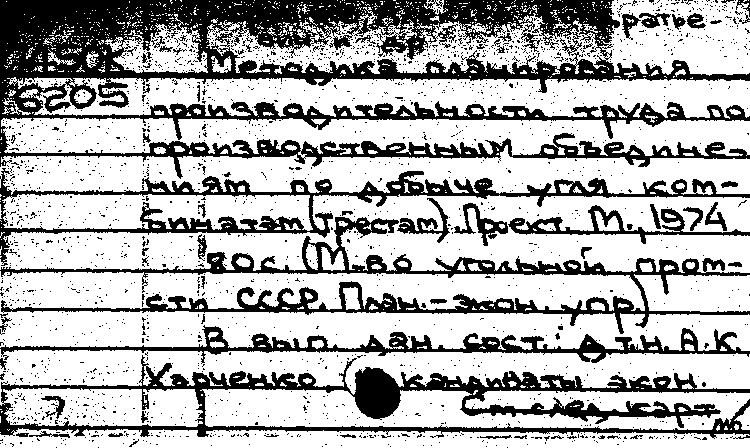 Братье-
вич и др
Методика планирования
6205 производительности труда по
производственным объедине-
ниям по добыче угля ком-
бинатам (трестам). Проект. М., 1974
80с. (М-во угольной пром-
сти СССР. План.-экон. упр.)
В вып. дан. сост.: д.т.н. А.К.
Харченко кандидаты экон.
См след карт